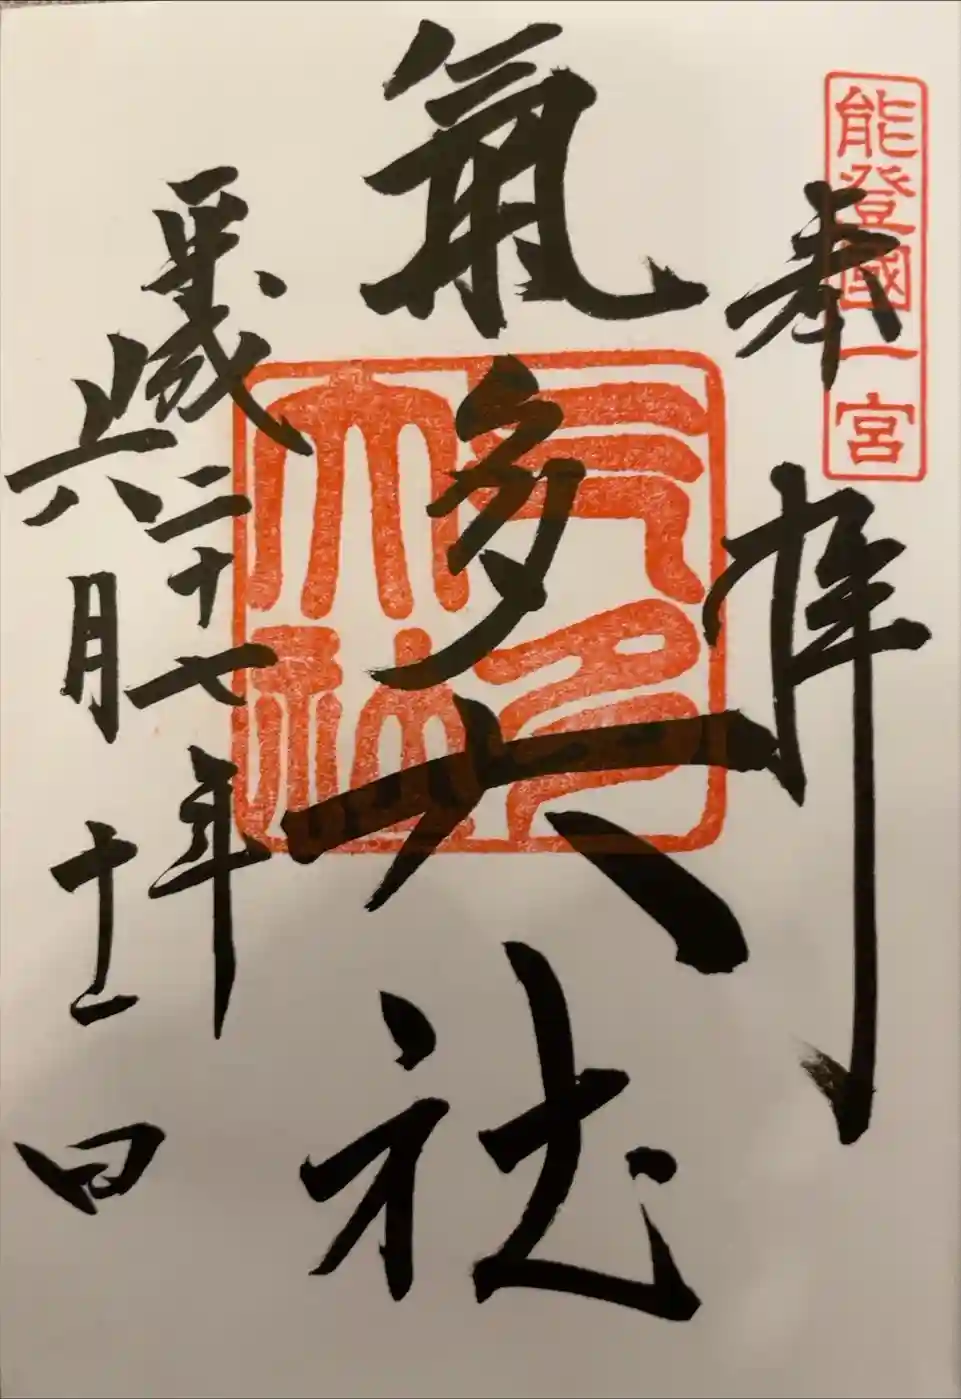 能登國一宮
奉拝
氣多大社
氣多大社
平成二十七年
六月十一日